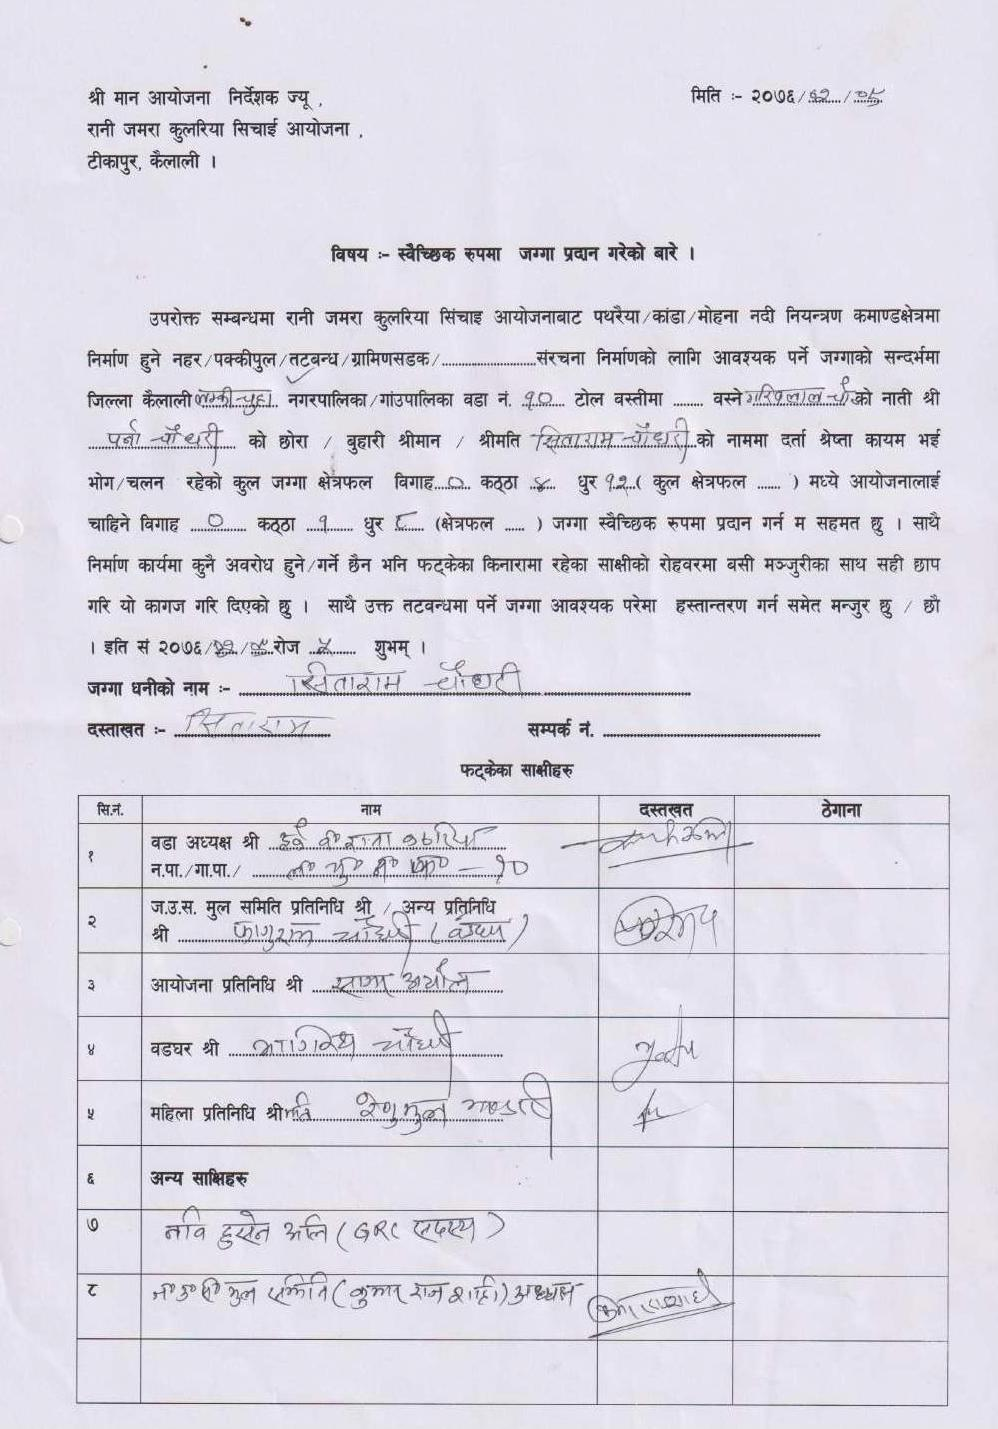 श्री मान आयोजना निर्देशक ज्यू ,
मिति :- २०७६/१२/०५
रानी जमरा कुलरिया सिचाई आयोजना ,
टीकापुर, कैलाली ।
विषय :- स्वैच्छिक रुपमा जग्गा प्रदान गरेको बारे ।
उपरोक्त सम्बन्धमा रानी जमरा कुलरिया सिंचाइ आयोजनाबाट पथरैया/कांडा/मोहना नदी नियन्त्रण कमाण्डक्षेत्रमा
निर्माण हुने नहर/पक्कीपुल/तटबन्ध/ग्रामिणसडक/........................संरचना निर्माणको लागि आवश्यक पर्ने जग्गाको सन्दर्भमा
जिल्ला कैलाली लम्कीचुहा नगरपालिका/गांउपालिका वडा नं. १० टोल वस्तीमा ........ वस्ने को नाती श्री
चौधरी को छोरा / बुहारी श्रीमान / श्रीमति सिताराम चौधरी को नाममा दर्ता श्रेष्ता कायम भई
भोग/चलन रहेको कुल जग्गा क्षेत्रफल विगाह ० कठ्ठा ४ धुर १२ ( कुल क्षेत्रफल ...... ) मध्ये आयोजनालाई
चाहिने विगाह ० कठ्ठा १ धुर ८ (क्षेत्रफल ..... ) जग्गा स्वैच्छिक रुपमा प्रदान गर्न म सहमत छु । साथै
निर्माण कार्यमा कुनै अवरोध हुने/गर्ने छैन भनि फट्केका किनारामा रहेका साक्षीको रोहवरमा बसी मञ्जुरीका साथ सही छाप
गरि यो कागज गरि दिएको छु । साथै उक्त तटवन्धमा पर्ने जग्गा आवश्यक परेमा हस्तान्तरण गर्न समेत मन्जुर छु / छौ
। इति सं २०७६/१२/०५ रोज शुभम् ।
जग्गा धनीको नाम :- सिताराम चौधरी
दस्ताखत :- सिताराम सम्पर्क नं. ........................
फट्केका साक्षीहरु
सि.नं. नाम दस्तखत ठेगाना
१ वडा अध्यक्ष श्री
न.पा./गा.पा./ १०
२ ज.उ.स. मुल समिति प्रतिनिधि श्री / अन्य प्रतिनिधि
श्री फागुराम चौधरी
३ आयोजना प्रतिनिधि श्री
४ वडघर श्री चौधरी
५ महिला प्रतिनिधि श्रीमति
६ अन्य साक्षिहरु
७ नवि हुसेन अलि (GRC सदस्य)
८ ज० उ० स० मुल समिति (कुमार राज शाही) अध्यक्ष